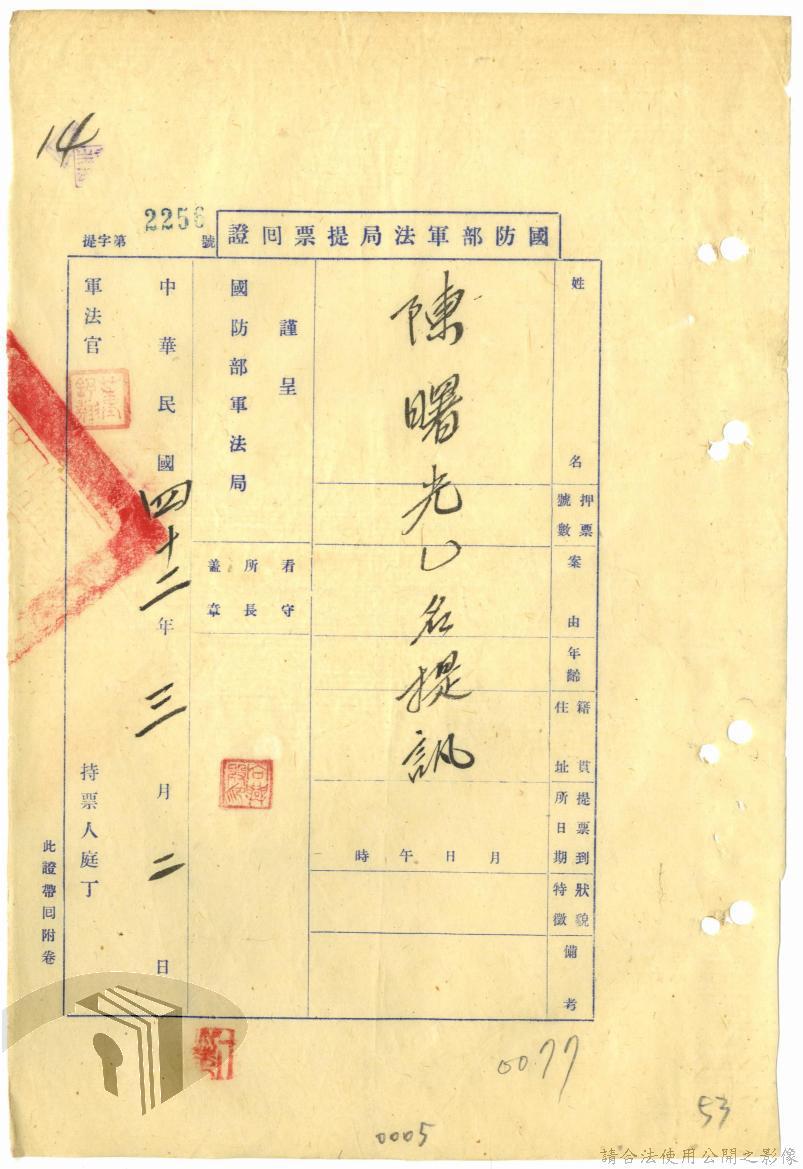 14
提字第 2256 號
國防部軍法局提票回證
姓名
押票號數
案由
年齡
籍貫住址
提票到所日期
狀貌特徵
備考
陳曙光 名提訊
月 日 午 時
謹呈
國防部軍法局
看守所長蓋章
中華民國四十二年三月二日
軍法官
持票人庭丁
此證帶回附卷
0077
53
0005
請合法使用公開之影像